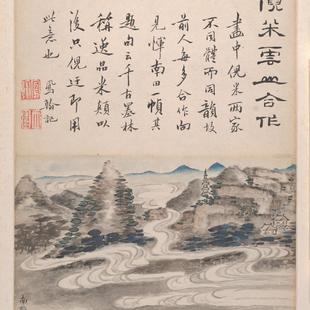 倪米雲山合作
畫中倪米兩家
不同體而同韻故
前人每多合作向
見惲南田一幀其
題句云千古墨林
稱逸品米顛以
後只倪迂即用
此意也 翰記
南